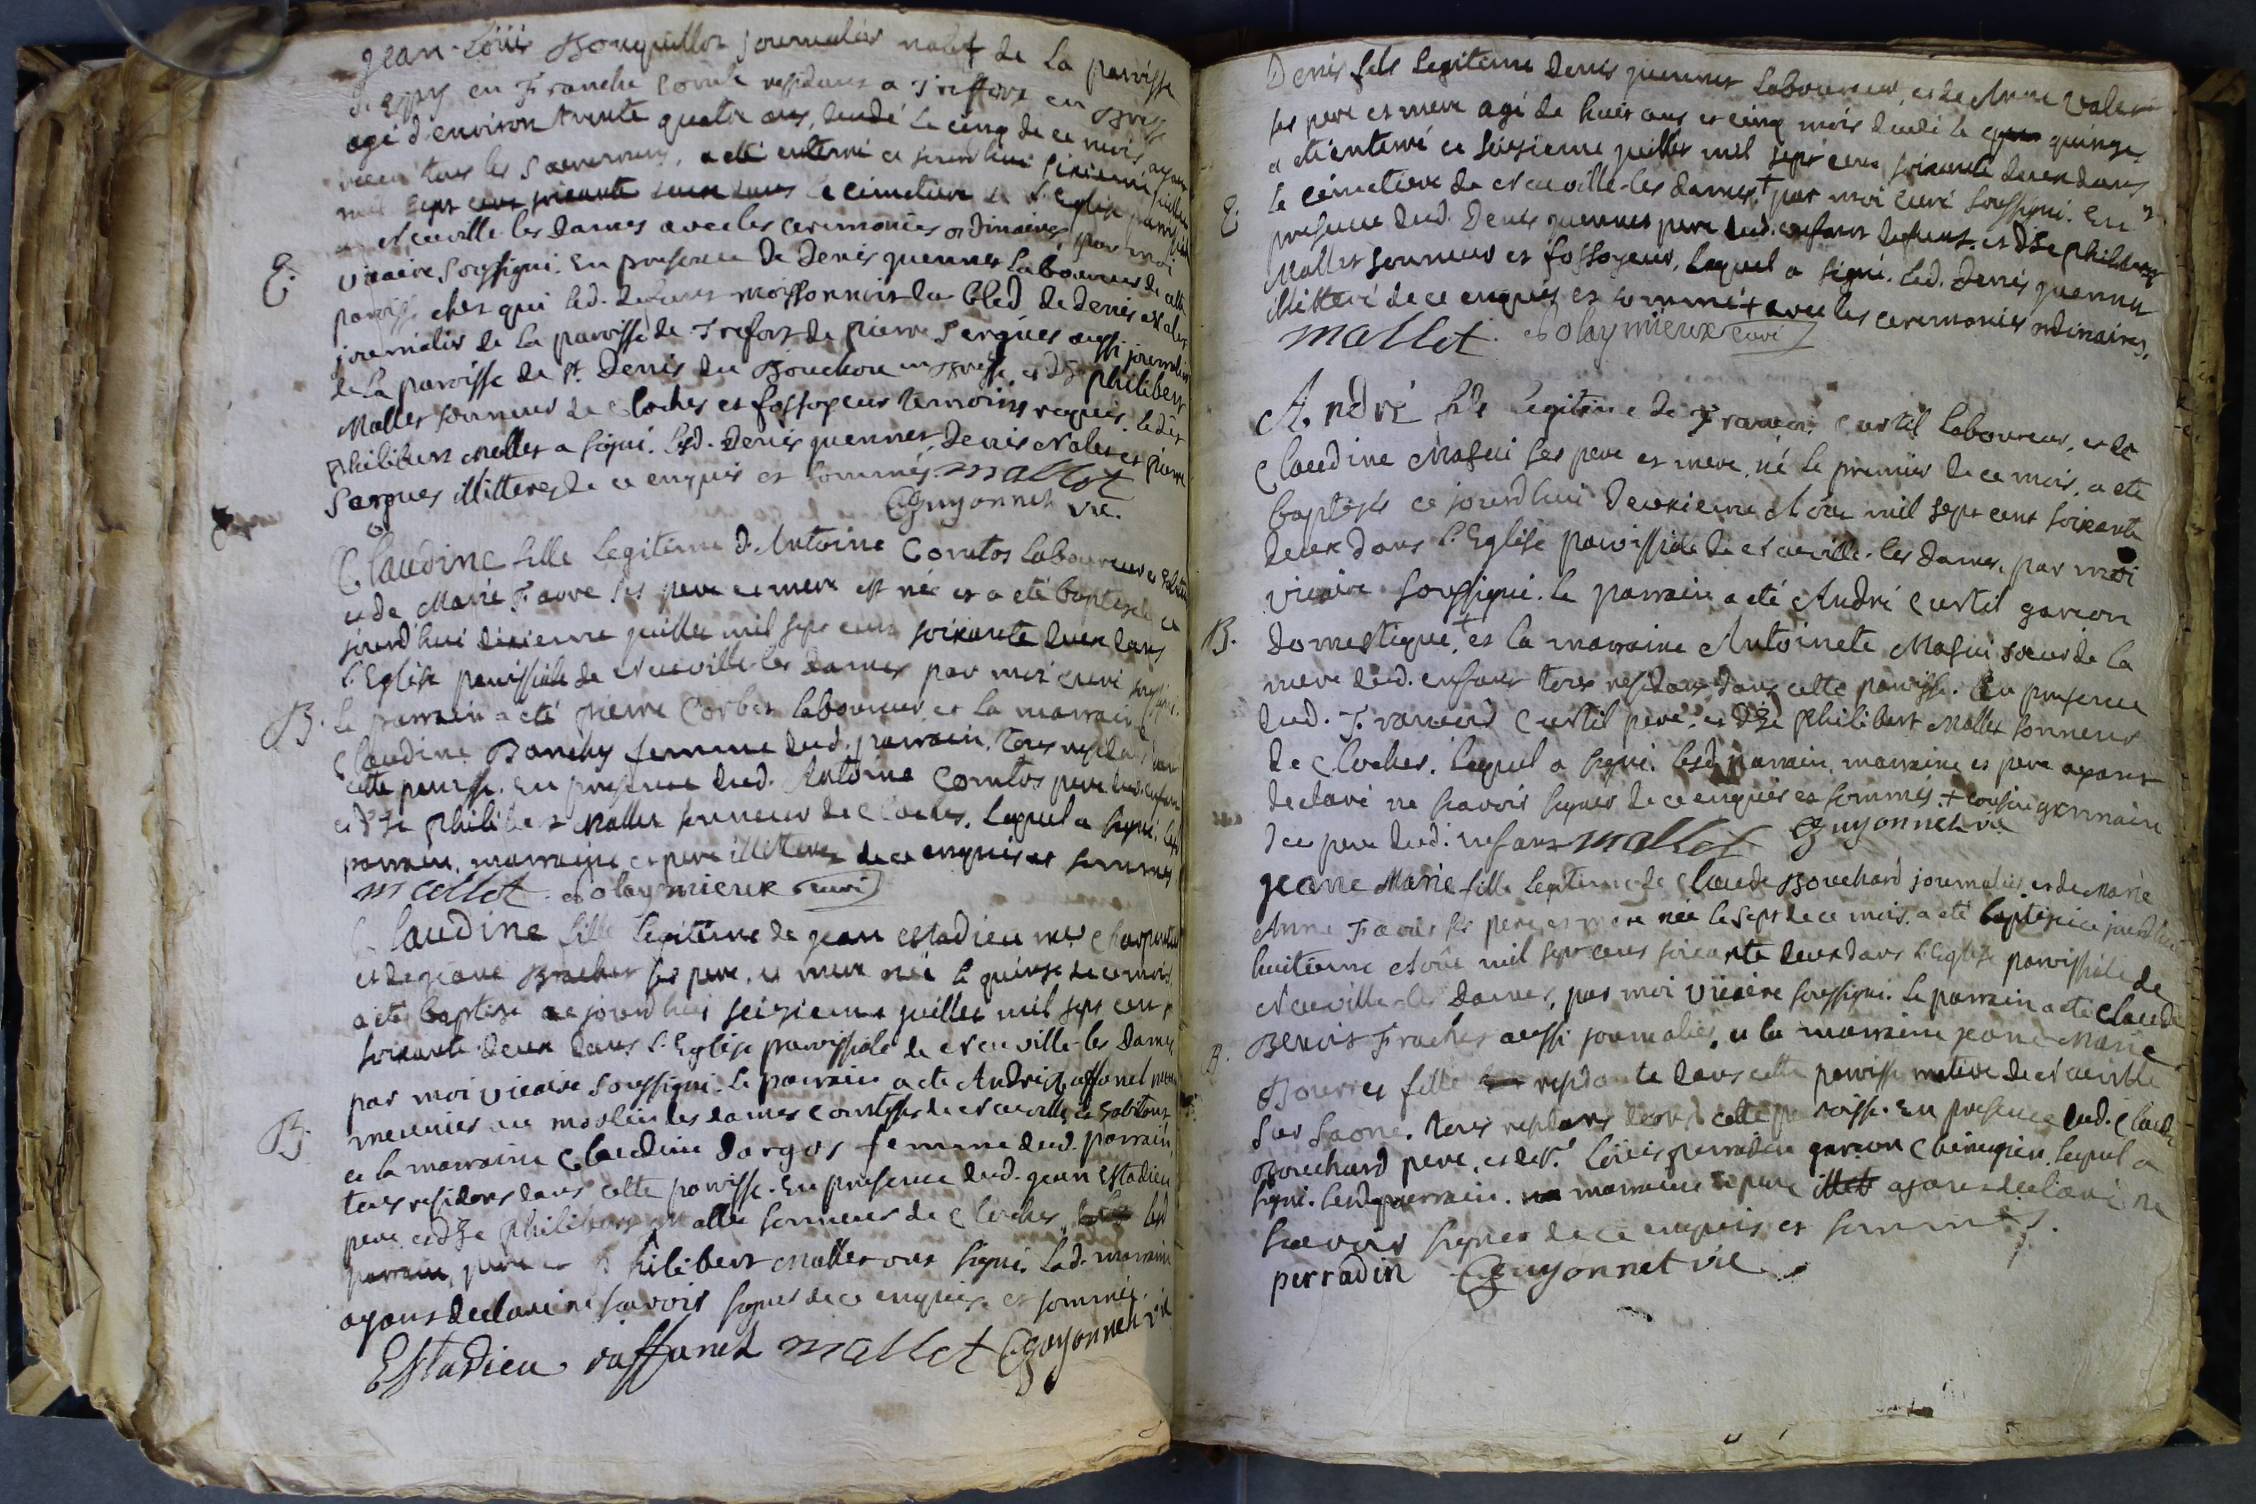 Jean-Loüis Bouquillon journalier natif de La paroisse
d'Espy en Franche Comté residant a Treffort en Bresse
agé d'environ trente quatre ans, decedé Le cinq de ce mois ayant
receu tous les Sacremens, a été enterré ce jourd'hui sixieme juillet
mil sept cent soixante deux dans le cimetiere de L'Eglise paroissiale
de Neuville les dames avec les ceremonies ordinaires par moi
E. vicaire soussigné. En presence de Denis quennet Laboureur de cette
paroisse chez qui led. defunt moissonnoit du bled, de Denis Nalet
journalier de La paroisse de Trefort de pierre Sergues aussi journalier
de La paroisse de St. Denis du Bouchou en Bresse, et d'Ze philibert
Mallet sonneur de cloches et fossoyeur temoins requis. Ledit
philibert Mallet a signé. Lesd. Denis quennet, Denis Nalet et pierre
Sergues illitteres de ce enquis et sommés. mallot
CGuyonnet vic.
Claudine fille Legitime d'Antoine Comtos Laboureur
et de Marie Favre ses pere et mere est née et a été baptisée ce
jourd'hui dixieme juillet mil sept cent soixante deux dans
L'Eglise paroissiale de Neuville-les dames par moi curé soussigné.
B. Le parrain a été pierre Corbet laboureur et la marraine
Claudine Banchy femme dud. parrain. Tous residans dans
cette paroisse. En presence dud. Antoine Comtos pere dud. enfant
et d'Ze philibert Mallet sonneur de cloches. Lequel a signé. Lesd.
parrain, marraine et pere illitteres de ce enquis et sommes
mallot Dolaymieux curé
Claudine fille Legitime de jean Estadieu me charpentier
et de jeane Brachet ses pere et mere née le quinze de ce mois,
a été baptisée ce jourd'hui seizieme juillet mil sept cent
soixante deux dans L'Eglise paroissiale de Neuville-les Dames
par moi vicaire soussigné. Le parrain a été André Raffanel
B. meunier au moulin des dames Comtesses de Neuville
et la marraine Claudine dargos femme dud. parrain,
tous residans dans cette paroisse. En presence dud. jean Estadieu
pere, et d'Ze philibert Mallet sonneur de cloches Lesd
parrain, pere et philibert Mallet ont signé. Lad. marraine
ayant declaré ne scavoir signer de ce enquise et sommée.
Estadieu raffanel mallot CGuyonnet vic
Denis fils Legitime Denis quennet Laboureur, et de Anne Valet
ses pere et mere agé de huit ans et cinq mois decedé le quinze
a été enterré ce seizieme juillet mil sept cent soixante deux dans
E. le cimetiere de Neuville-les dames + par moi curé soussigné. En
presence dud. Denis quennet pere dud. enfant defunt et d'Ze philibert
Mallet sonneur et fossoyeur, Lequel a signé. Led. Denis quennet
illitteré de ce enquis et sommé + avec les ceremonies ordinaires.
mallot Dolaymieux curé
André fils Legitime de Francois Curtil Laboureur, et de
Claudine Masui ses pere et mere, né le premier de ce mois, a été
baptisés ce jourd'hui deuxieme Aout mil sept cent soixante
deux dans L'Eglise paroissiale de Neuville-les dames, par moi
vicaire soussigné. Le parrain a été André Curtil garcon
B. domestique, + et la marraine Antoinete Masui soeur de la
mere dud. enfant tous residans dans cette paroisse. En presence
dud. Francois Curtil pere, et d'Ze philibert Mallet sonneur
de cloches. Lequel a signé. Lesd parrain, marraine et pere ayant
declaré ne scavoir signer de ce enquis et sommés. + cousin germain
du pere dud. enfant mallot CGuyonnet vic
Jeanne Marie fille Legitime de Claude Bouchard journalier et de Marie
Anne Favre ses pere et mere née le sept de ce mois, a été baptisée ce jourd'hui
huitieme Aout mil sept cent soixante deux dans L'Eglise paroissiale de
Neuville-les Dames, par moi vicaire soussigné. Le parrain a été Claude
B. Benoist Frachet aussi journalier, et la marraine jeane-Marie
Bourret fille residante dans cette paroisse native de Neuville
sur Saone. Tous residans dans cette paroisse. En presence dud. Claude
Bouchard pere, et de Sr. Loüis perradin garcon chirurgien. Lequel a
signé. Lesd parrain. marraine et pere ayant declaré ne
scavoir signer de ce enquis et sommés.
perradin CGuyonnet vic